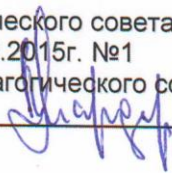 ческого совета
.2015г. №1
агогического со